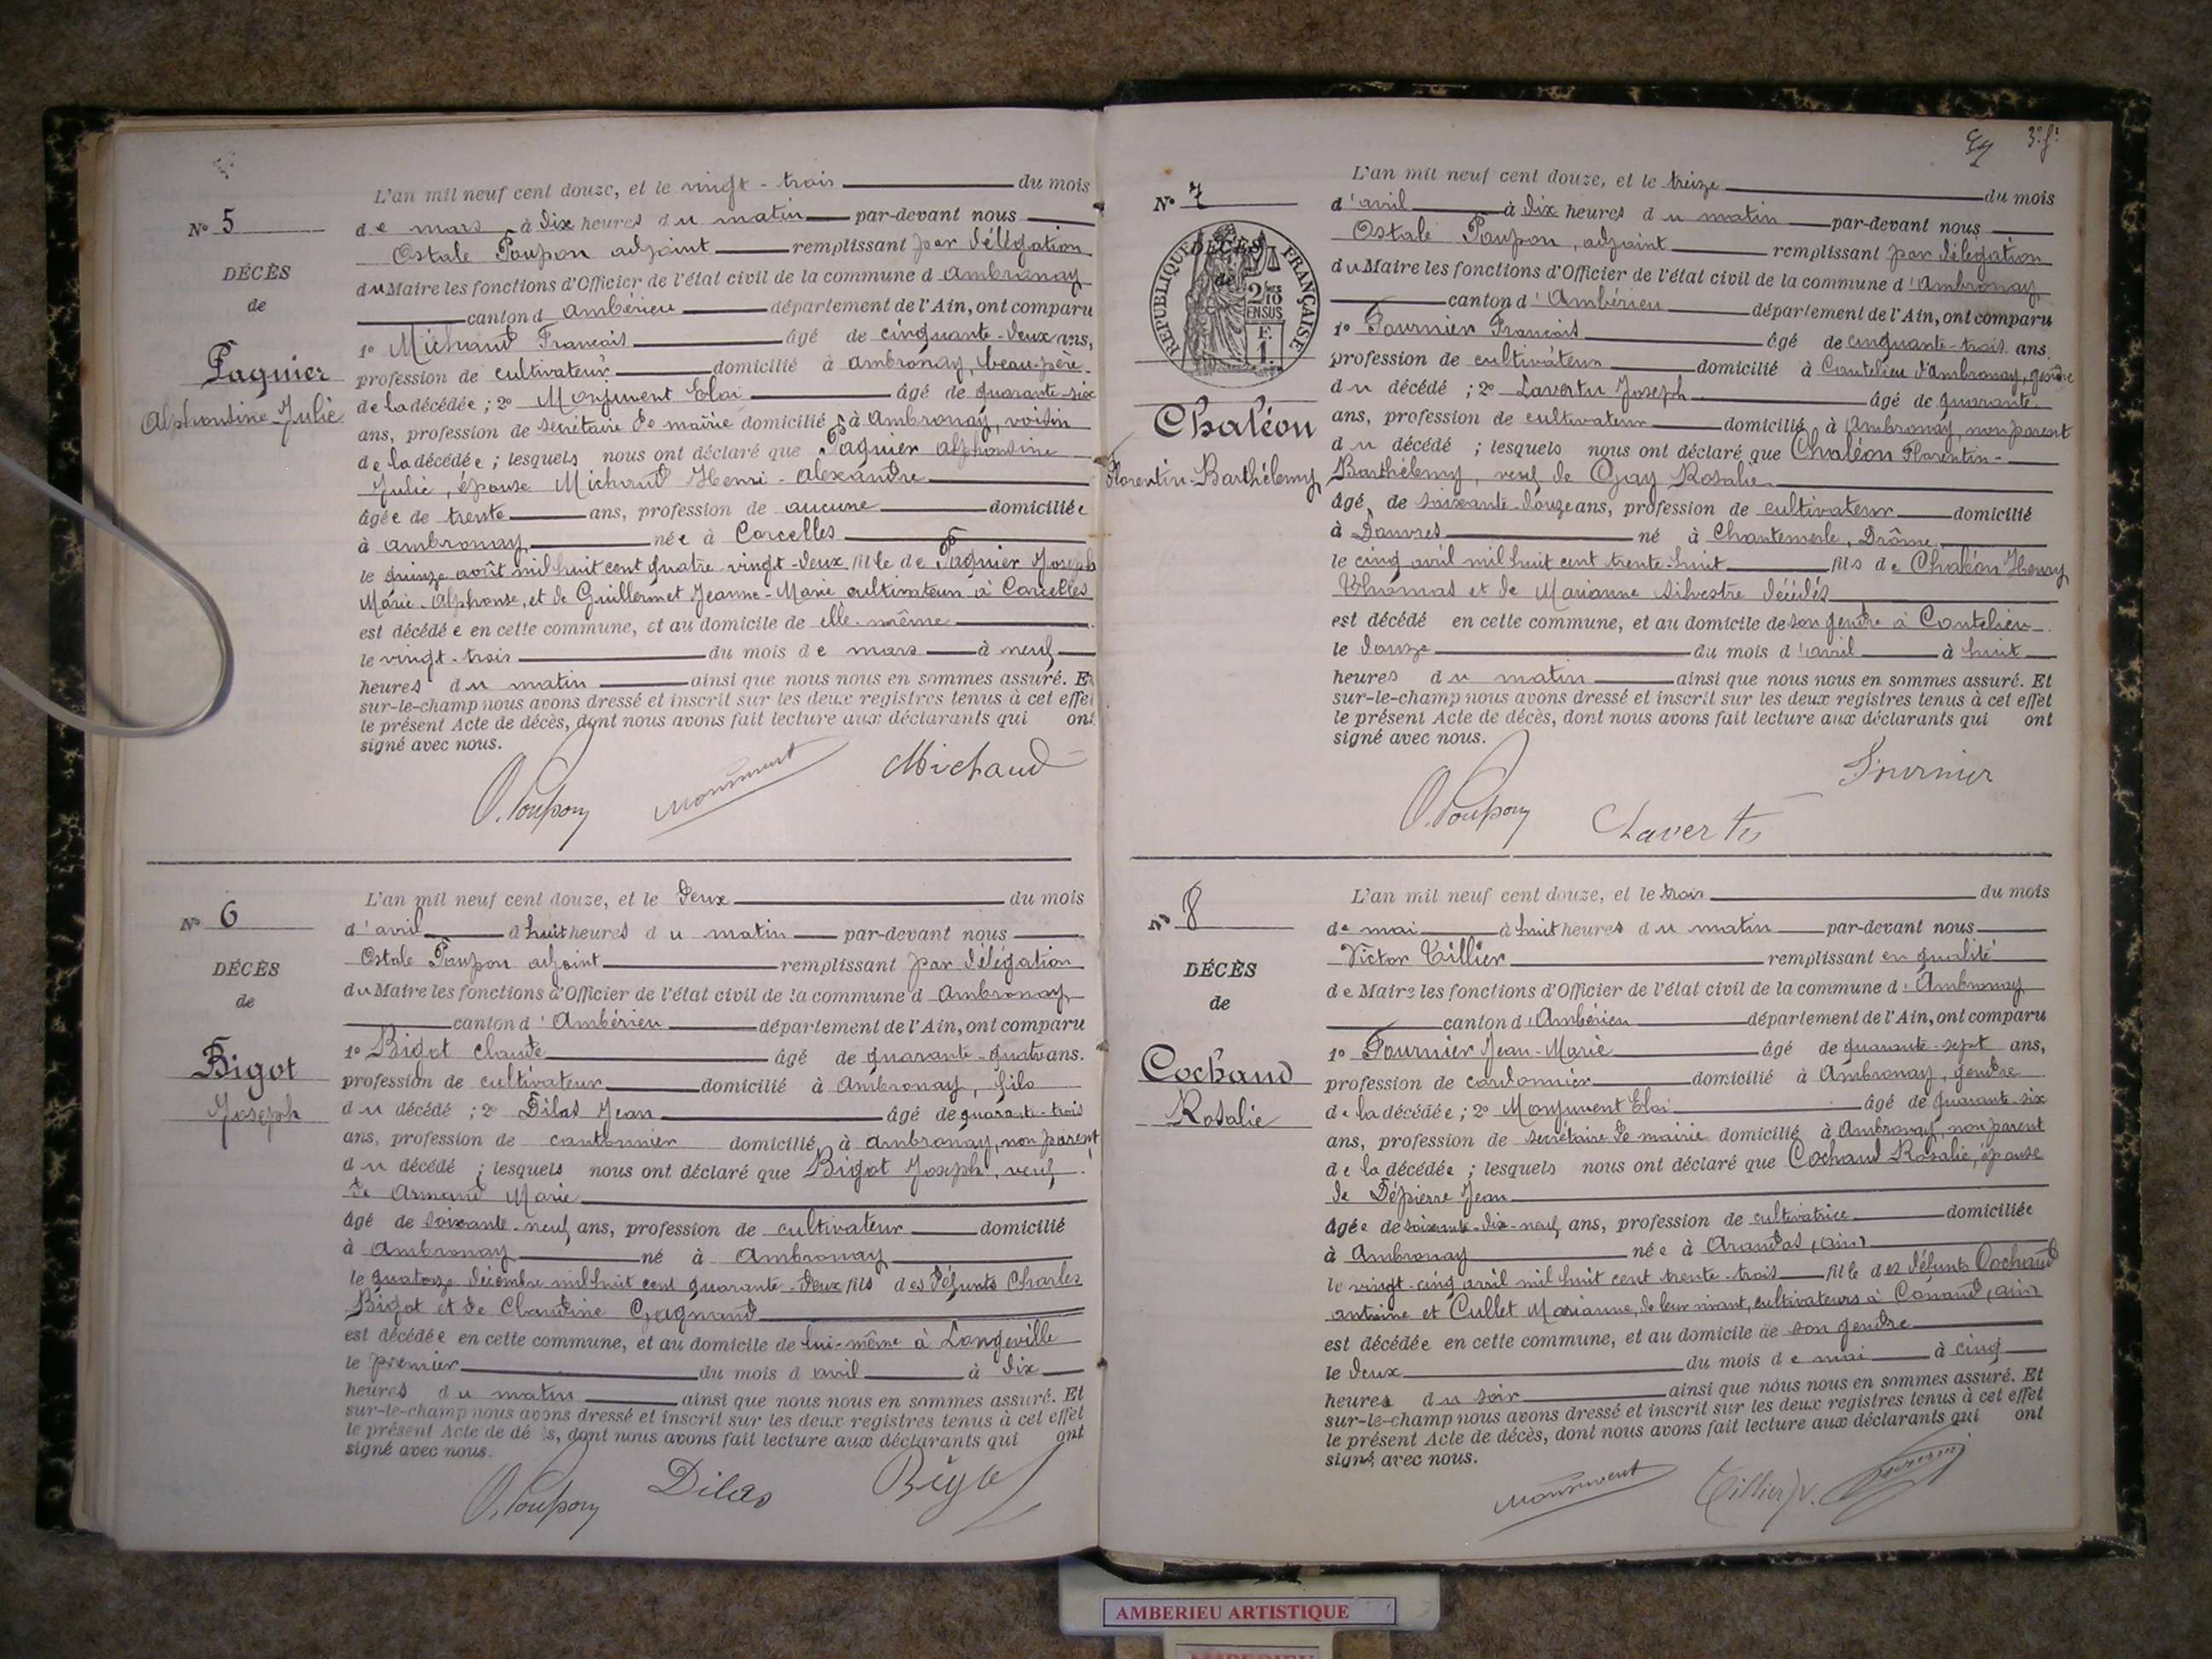 N° 5
DÉCÈS
de
Pagnier
Alphonsine-Julie
L'an mil neuf cent douze, et le vingt-trois du mois
de mars à dix heures du matin par-devant nous
Ostale Poupon adjoint remplissant par délégation
du Maire les fonctions d'Officier de l'état civil de la commune d Ambronay
canton d Ambérieu département de l'Ain, ont comparu
1° Michaud Francois âgé de cinquante-deux ans,
profession de cultivateur domicilié à Ambronay, beau-père
de la décédée ; 2° Monjuvent Eloi âgé de quarante-six
ans, profession de secrétaire de mairie domicilié à Ambronay, voisin
de la décédée ; lesquels nous ont déclaré que Pagnier Alphonsine
Julie, épouse Michaud Henri-Alexandre
âgée de trente ans, profession de aucune domiciliée
à Ambronay née à Corcelles
le quinze août mil huit cent quatre vingt-deux fille de Pagnier Joseph
Marie-Alphonse, et de Guillermet Jeanne-Marie cultivateurs à Corcelles
est décédée en cette commune, et au domicile de elle-même
le vingt-trois du mois de mars à neuf
heures du matin ainsi que nous nous en sommes assuré. Et
sur-le-champ nous avons dressé et inscrit sur les deux registres tenus à cet effet
le présent Acte de décès, dont nous avons fait lecture aux déclarants qui ont
signé avec nous.
O. Poupon Monjuvent Michaud
N° 6
DÉCÈS
de
Bigot
Joseph
L'an mil neuf cent douze, et le deux du mois
d'avril à huit heures du matin par-devant nous
Ostale Poupon adjoint remplissant par délégation
du Maire les fonctions d'Officier de l'état civil de la commune d Ambronay
canton d'Ambérieu département de l'Ain, ont comparu
1° Bigot Claude âgé de quarante-quatre ans.
profession de cultivateur domicilié à Ambronay, fils
du décédé ; 2° Dilas Jean âgé de quarante-trois
ans, profession de cantonnier domicilié à Ambronay, non parent
du décédé ; lesquels nous ont déclaré que Bigot Joseph, veuf
de Armand Marie
âgé de soixante-neuf ans, profession de cultivateur domicilié
à Ambronay né à Ambronay
le quatorze décembre mil huit cent quarante-deux fils des défunts Charles
Bigot et de Claudine Gagnand
est décédée en cette commune, et au domicile de lui-même à Longeville
le premier du mois d avril à dix
heures du matin ainsi que nous nous en sommes assuré. Et
sur-le-champ nous avons dressé et inscrit sur les deux registres tenus à cet effet
le présent Acte de dé s, dont nous avons fait lecture aux déclarants qui ont
signé avec nous.
O. Poupon Dilas Bigot
3e f.
N° 7
RÉPUBLIQUE FRANÇAISE
DÉCÈS
de
2/10 EN SUS
F. 1.
Chaléon
Florentin-Barthélemy
L'an mil neuf cent douze, et le treize du mois
d'avril à dix heures du matin par-devant nous
Ostale Poupon, adjoint remplissant par délégation
du Maire les fonctions d'Officier de l'état civil de la commune d'Ambronay
canton d'Ambérieu département de l'Ain, ont comparu
1° Fournier Francois âgé de cinquante-trois ans.
profession de cultivateur domicilié à Coutelieu d'Ambronay, gendre
du décédé ; 2° Lavertu Joseph âgé de quarante
ans, profession de cultivateur domicilié à Ambronay, non parent
du décédé ; lesquels nous ont déclaré que Chaléon Florentin-
Barthélemy, veuf de Gay Rosalie
âgé de soixante-douze ans, profession de cultivateur domicilié
à Douvres né à Chantemerle, Drôme
le cinq avril mil huit cent trente-huit fils de Chaléon Henry
Thomas et de Marianne Silvestre décédés
est décédé en cette commune, et au domicile de son gendre à Coutelieu
le douze du mois d'avril à huit
heures du matin ainsi que nous nous en sommes assuré. Et
sur-le-champ nous avons dressé et inscrit sur les deux registres tenus à cet effet
le présent Acte de décès, dont nous avons fait lecture aux déclarants qui ont
signé avec nous.
O. Poupon Lavertu Fournier
N° 8
DÉCÈS
de
Cochaud
Rosalie
L'an mil neuf cent douze, et le trois du mois
de mai à huit heures du matin par-devant nous
Victor Tillier remplissant en qualité
de Maire les fonctions d'Officier de l'état civil de la commune d'Ambronay
canton d'Ambérieu département de l'Ain, ont comparu
1° Fournier Jean-Marie âgé de quarante-sept ans,
profession de cordonnier domicilié à Ambronay, gendre
de la décédée ; 2° Monjuvent Eloi âgé de quarante-six
ans, profession de secrétaire de mairie domicilié à Ambronay, non parent
de la décédée ; lesquels nous ont déclaré que Cochaud Rosalie, épouse
de Dépierre Jean
âgée de soixante-dix-neuf ans, profession de cultivatrice domiciliée
à Ambronay née à Arandas, (Ain)
le vingt-cinq avril mil huit cent trente-trois fille des défunts Cochaud
Antoine et Cullet Marianne, de leur vivant, cultivateurs à Conand, (Ain)
est décédée en cette commune, et au domicile de son gendre
le deux du mois de mai à cinq
heures du soir ainsi que nous nous en sommes assuré. Et
sur-le-champ nous avons dressé et inscrit sur les deux registres tenus à cet effet
le présent Acte de décès, dont nous avons fait lecture aux déclarants qui ont
signé avec nous.
Monjuvent Tillier V. Fournier
AMBERIEU ARTISTIQUE
AMBERIEU